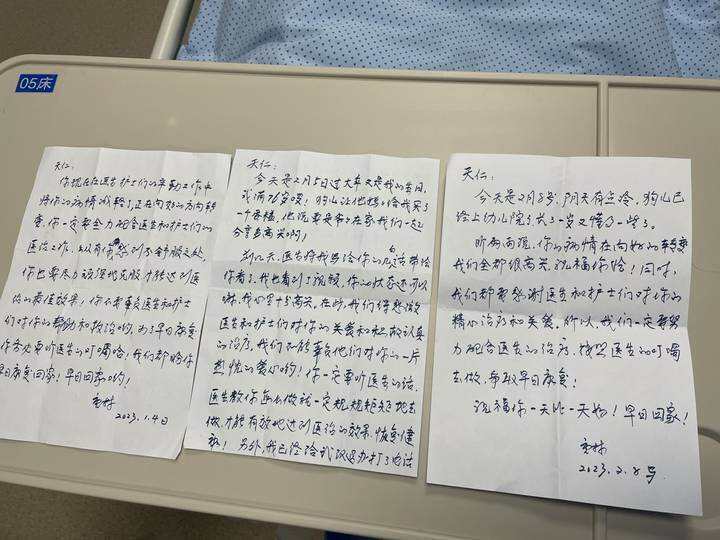 05床
天仁：
你现在在医生护士们的辛勤工作中
将你的病情减轻了,正在向好的方向转
变。你一定要全力配合医生和护士们的
医治工作。
你也要尽力
体的最佳效果,你不要辜负医生和护士
们对你的帮助和救治哟,为了早日康复
你务必要听医生的叮嘱哈,我们都盼你
早日康复回家!早日回家哟!
2023.1.4日
天仁：
今天是2月5日过大年又是我的生日,
我满76岁喽!狗儿让他妈妈给我买了
一个蛋糕,他说要是爷爷在家我们一起
分享多高兴啊!
前几天,医生将我写给你的几句话带给
你看了,我也看到了视频,你的状态还可以
嘛,我心里十分高兴。在此,我们得感激
医生和护士们对你的关爱和积极认真
的治疗,我们不能辜负他们对你的一片
热忱的爱心哟!你一定要听医生的话,
医生教你怎么做就一定规规矩矩地去
做,才能有效地达到医治的效果,恢复健
康!另外,我已经给武汉退办打了电话
天仁：
今天是2月8号,阴天有点冷,狗儿已
经上幼儿院了,长了一岁又懂了一些了。
听雨雨说,你的病情在向好的转变
我们全都很高兴,祝福你哈!同时,
我们都要感谢医生和护士们对你的
精心治疗和关爱。所以,我们一定要努
力配合医生的治疗,按照医生的叮嘱
去做,争取早日康复!
祝福你一天比一天好!早日回家!
2023.2.8号